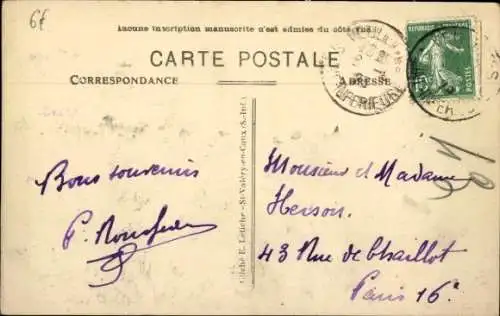 6f
Aucune inscription manuscrite n'est admise du côté
CARTE POSTALE
CORRESPONDANCE
ADRESSE
INFERIEURE
REPUBLIQUE FRANCAISE
POSTES
Bons souvenirs
P.
Cliché E. Letiche - St-Valéry-en-Caux (S.-Inf.)
Monsieur et Madame
Herson.
43 Rue de Chaillot
Paris 16e